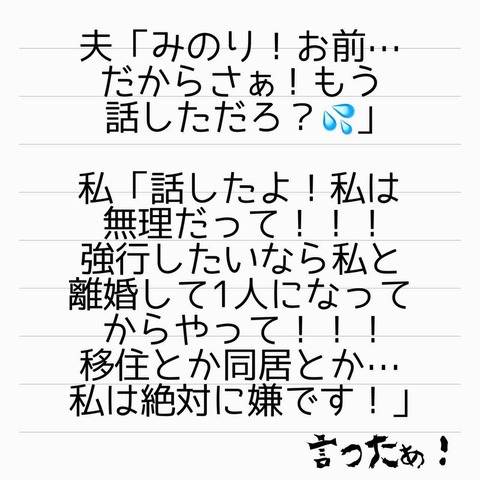 夫「みのり！お前…
だからさぁ！もう
話しただろ？💦」
私「話したよ！私は
無理だって！！！
強行したいなら私と
離婚して1人になって
からやって！！！
移住とか同居とか…
私は絶対に嫌です！」
言ったぁ！